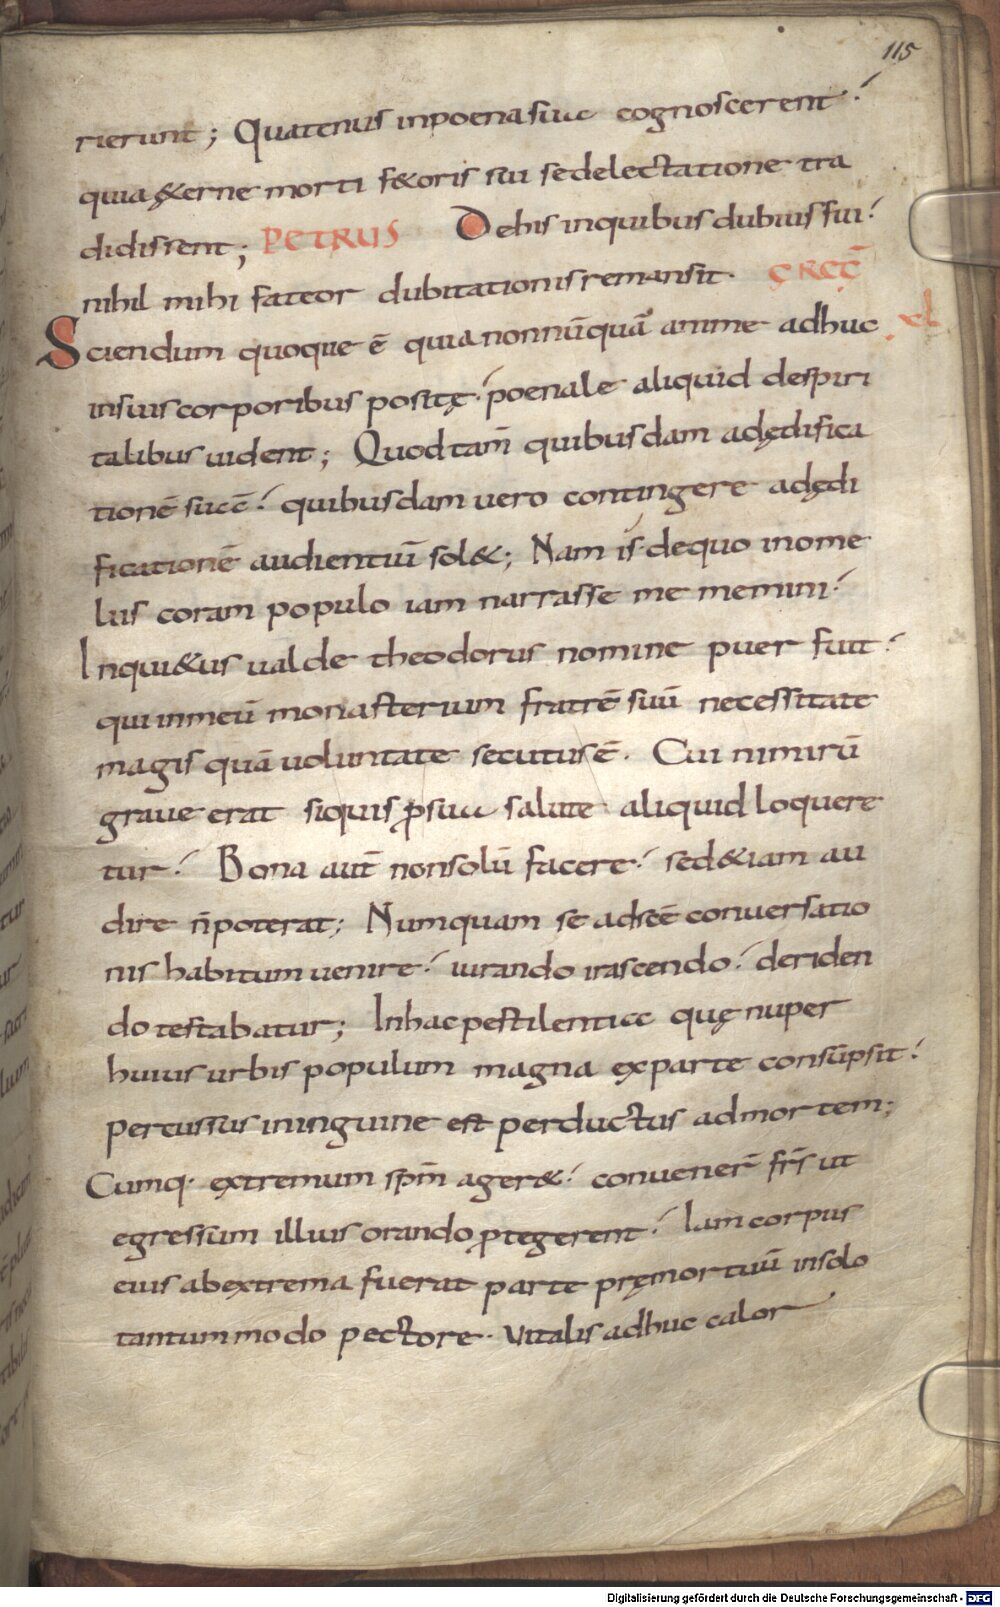 115
rierunt; Quatenus inpoenasua cognoscerent.
quia &erne morti f&oris sui sedelectatione tra
didissent; PETRUS Dehis inquibus dubius fui.
nihil mihi fateor dubitationis remansit. GREG̅
Sciendum quoque ē quia nonnūquā anime adhuc .xl
insuis corporibus positę. poenale aliquid despiri
talibus uident; Quod tam̅ quibusdam adędifica
tionē suā. quibusdam uero contingere adędi
ficationē audientiū sol&; Nam is dequo inome
liis coram populo iam narrasse me memini.
Inqui&us ualde theodorus nomine puer fuit.
qui inmeū monasterium fratrē suū necessitate
magis quā uoluntate secutus ē. Cui nimirū
graue erat siquis ꝓsua salute aliquid loquere
tur. Bona aut̅ nonsolū facere. sed&iam au
dire n̄poterat; Numquam se adscē conuersatio
nis habitum uenire. iurando irascendo. deriden
do testabatur; Inhac pestilentia quę nuper
huius urbis populum magna exparte consūpsit.
percussus ininguine est perductus admortem;
Cumq. extremum sp̅m ager&. conuener̅ fr̅s ut
egressum illius orando ꝓtegerent. Iam corpus
eius abextrema fuerat parte pręmortuū insolo
tantummodo pectore. Vitalis adhuc calor
Digitalisierung gefördert durch die Deutsche Forschungsgemeinschaft - DFG